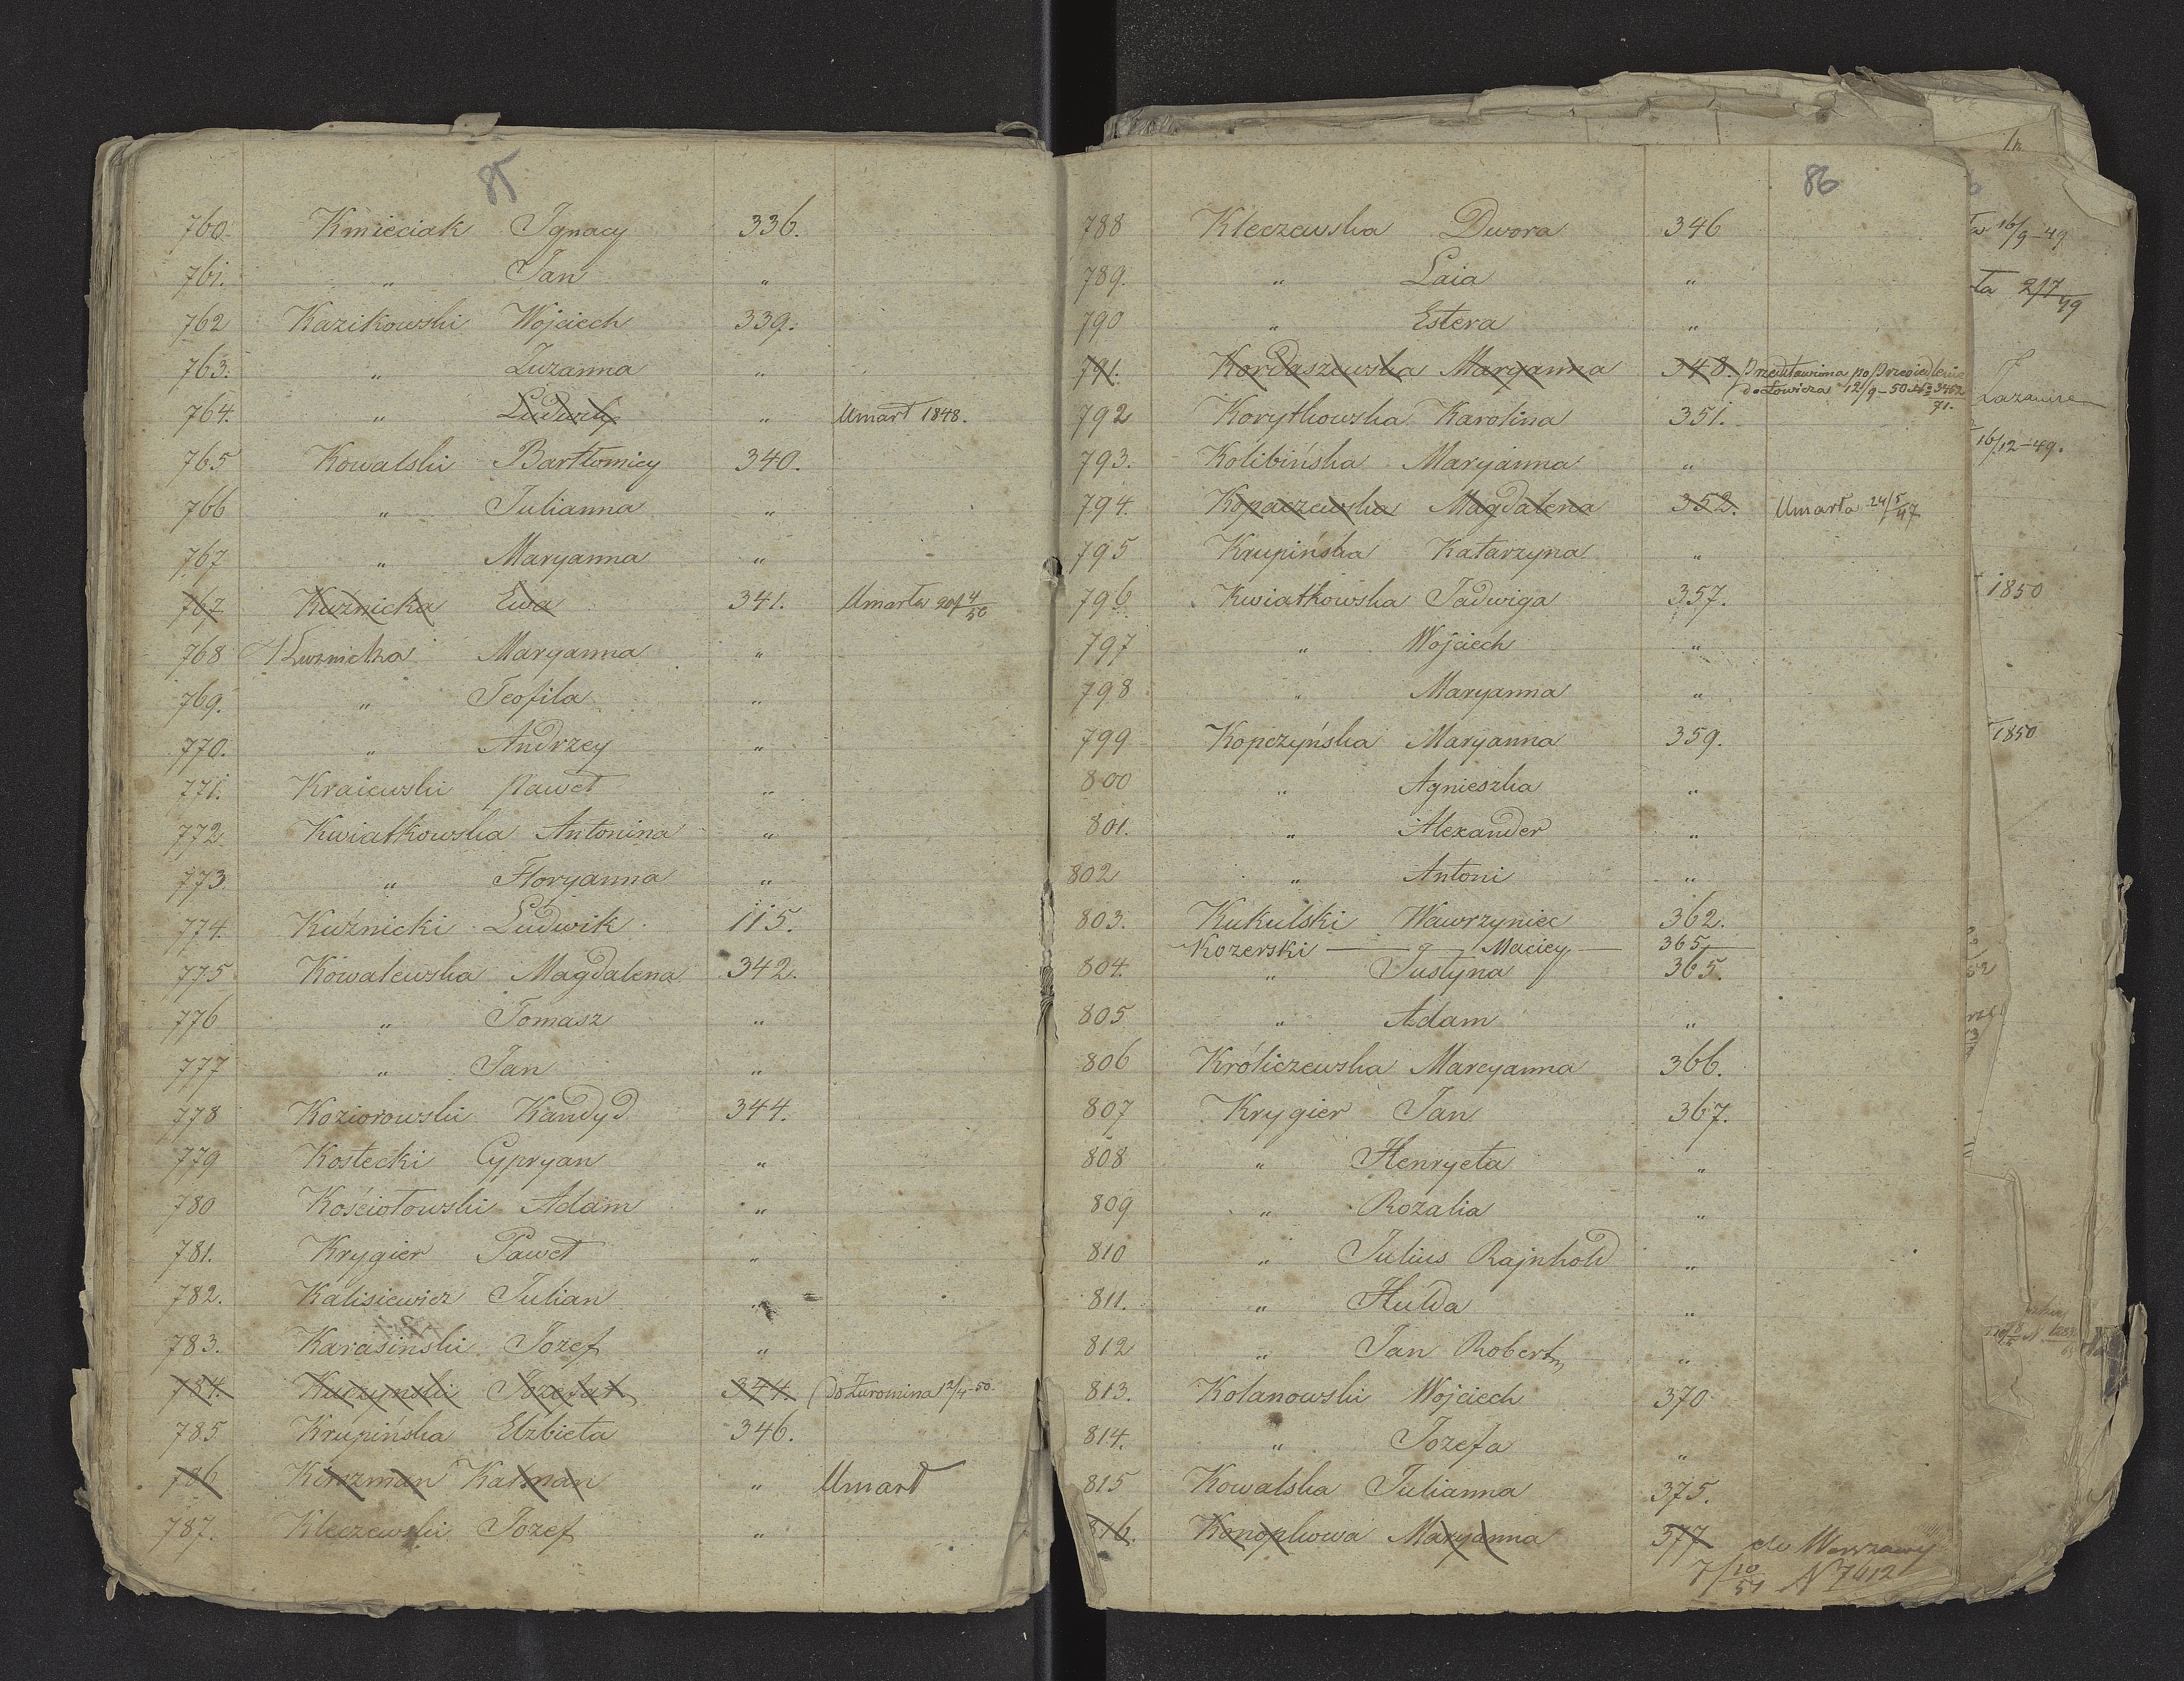 85
760. Kmieciak Ignacy 336.
761. " Jan "
762 Kazikowski Wojciech 339.
763. " Zuzanna "
764. " Ludwik " Umarł 1848.
765 Kowalski Bartłomiey 340.
766 " Julianna "
767 " Maryanna "
767 Kuźnicka Ewa 341. Umarła 20/4 50
768 Kuźnicka Maryanna "
769. " Teofila "
770. " Andrzey "
771. Kraiewski Paweł "
772. Kwiatkowska Antonina "
773. " Floryanna "
774. Kuźnicki Ludwik 115.
775 Kowalewska Magdalena 342.
776 " Tomasz "
777 " Jan "
778 Koziorowski Kandyd 344.
779 Kostecki Cypryan "
780 Kościołowski Adam "
781. Krygier Paweł "
782. Kalisiewicz Julian "
783. Karasiński Józef "
784. Kuczyński Jozefat 344 do Żuromina 12/4-50.
785 Krupińska Elżbieta 346.
786 Kinzman Kalman " Umarł
787. Kleczewski Jozef "
86
788 Kleczewska Dwora 346
789. " Laia "
790 " Estera "
791. Kordaszewska Maryanna 348. Przedstawiona po Przesiedlenie
do Łowicza 12/9-50 3452
71.
792 Korytkowska Karolina 351.
793. Kolibińska Maryanna "
794. Kopaczewska Magdalena 352. Umarła 24/5 47
795 Krupińska Katarzyna "
796 Kwiatkowska Jadwiga 357.
797 " Wojciech "
798 " Maryanna "
799 Kopczyńska Maryanna 359.
800 " Agnieszka "
801. " Alexander "
802 " Antoni "
803. Kukulski Wawrzyniec 362.
Kozerski Maciey 365
804. " Justyna 365.
805 " Adam "
806 Króliczewska Marcyanna 366.
807 Krygier Jan 367.
808 " Henryeta "
809 " Rozalia "
810 " Julius Rajnhold "
811. " Hulda "
812 " Jan Robert "
813. Kolanowski Wojciech 370
814. " Jozefa "
815 Kowalska Julianna 375.
816. Konopkowa Maryanna 377 do Warszawy
7/10 51 N 7412
16/9-49
ła 2/7 49
16/12-49.
1850
1850